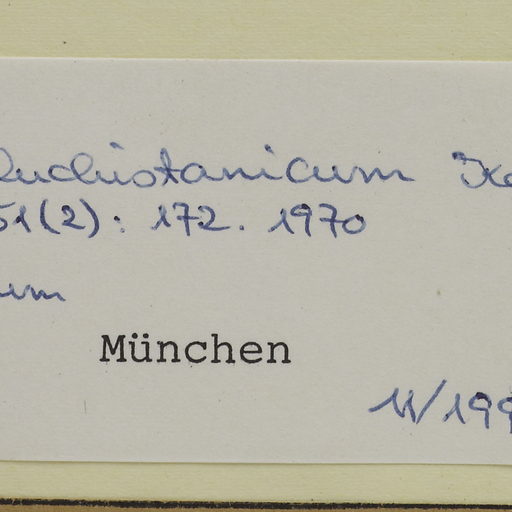 luchistanicum
51(2): 172. 1970
um
München
11/199